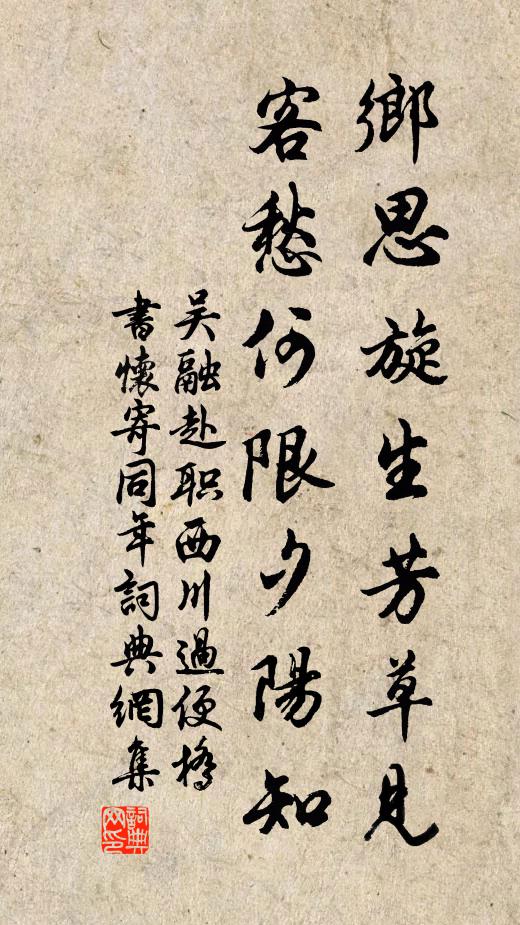 鄉思旋生芳草見
客愁何限夕陽知
吳融赴职西川過便橋
書懷寄同年詞典網集
詞典網印